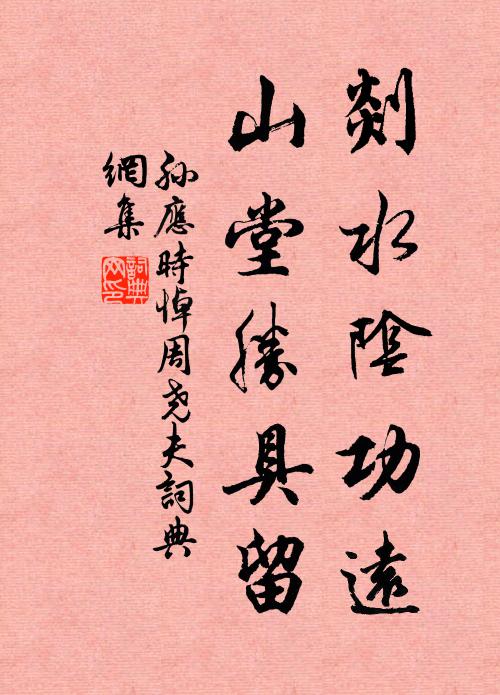 剡水陰功遠
山堂勝具留
孫應時悼周堯夫詞典
網集
詞典網印